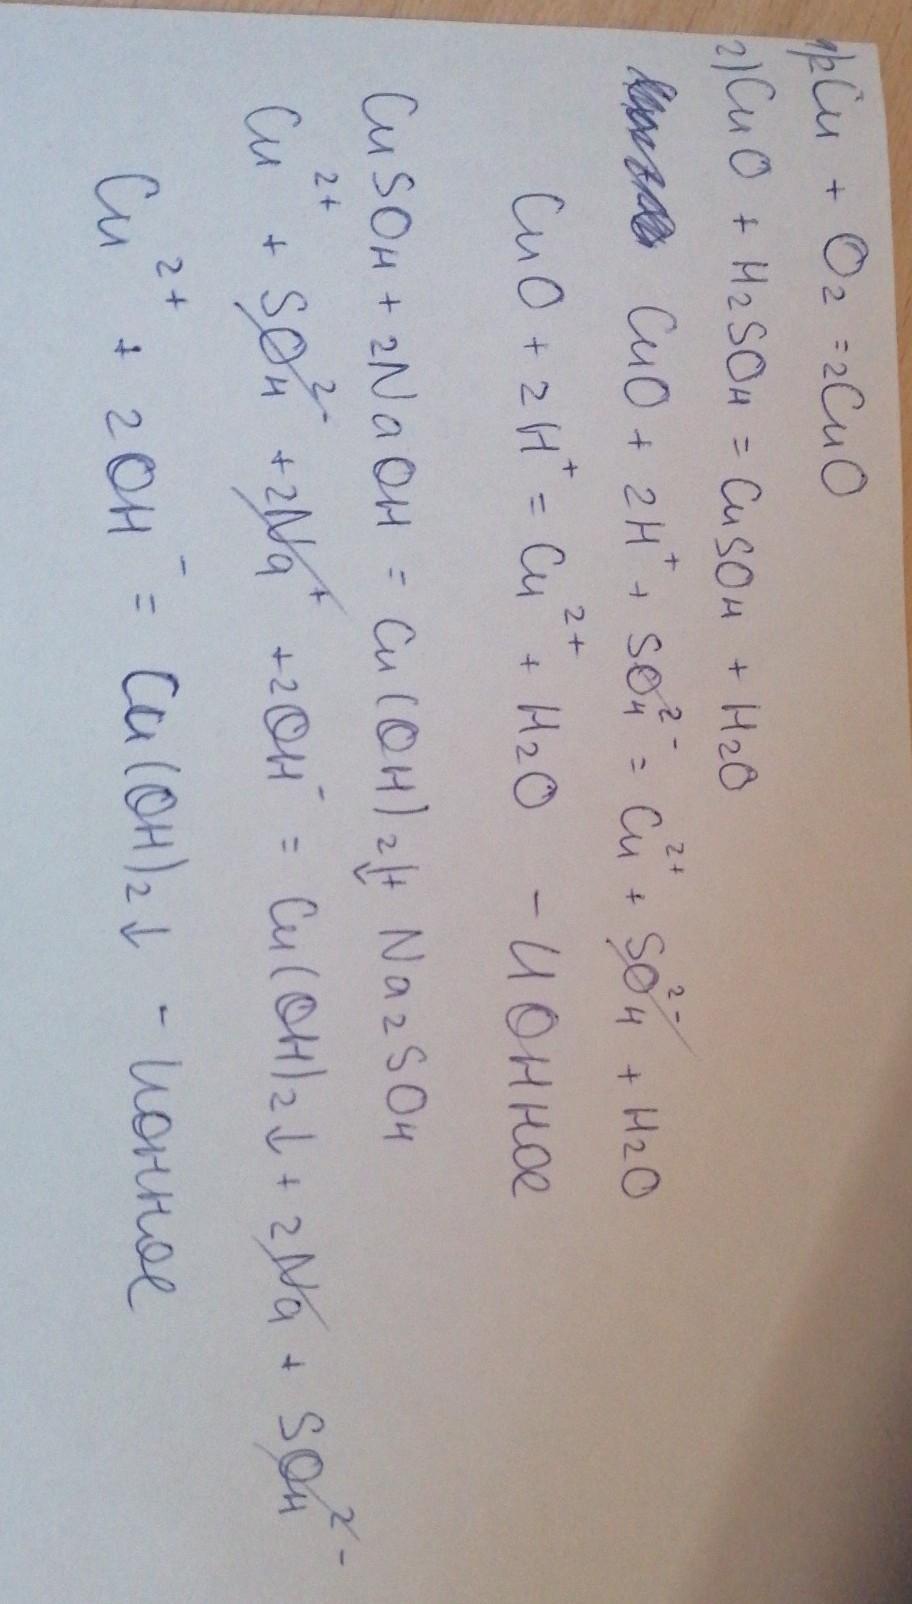 1) 2Cu + O2 = 2CuO
2) CuO + H2SO4 = CuSO4 + H2O
CuO + 2H⁺ + SO4²⁻ = Cu²⁺ + SO4²⁻ + H2O
CuO + 2H⁺ = Cu²⁺ + H2O - ионное
CuSO4 + 2NaOH = Cu(OH)2↓ + Na2SO4
Cu²⁺ + SO4²⁻ + 2Na⁺ + 2OH⁻ = Cu(OH)2↓ + 2Na + SO4²⁻
Cu²⁺ + 2OH⁻ = Cu(OH)2↓ - ионное